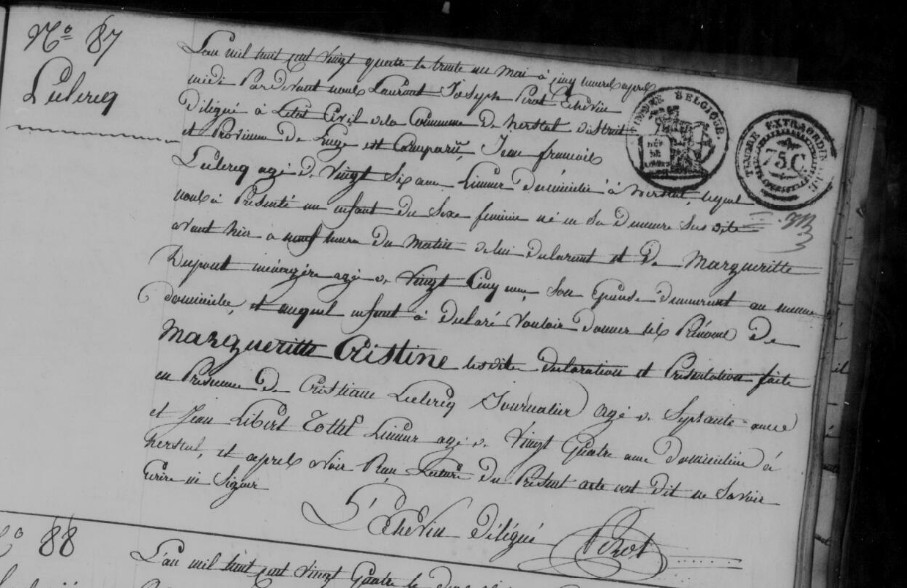 N.o 87
Leclercq
L'an mil huit cent vingt quatre le trente un mai à cinq heures après
midi Pardevant nous Laurant Joseph Pirot Echevin
Diligué à L'etat Civil de la Commune de herstal district
et Province de Liege est Comparu, Jean francois
Leclercq agé de Vingt Six ans Limeur domicilié à herstal, lequel
nous à Presenté un enfant du Sexe feminin né en Sa Demeure Sus dite
avant hier à neuf heures du Matin de lui declarant et de Margueritte
Dupont ménagère agé de Vingt Cinq ans, Son Epouse demeurant au meme
domicile, et auquel enfant à declaré Vouloir donner les Prénoms De
Margueritte Cristine les dite declaration et Présentation faite
en Présence de Cristiane Leclercq Journalier agé de Septante ans
et Jean Libert Tottel Limeur agé de Vingt Quatre ans domicilié à
herstal, et après avoir Reçu Lecture du Présent acte ont dit ne Savoir
Ecrire ni Signer
L'Echevin Diligué Pirot
TIMBRE BELGIQUE
TIMBRE EXTRAORDIN.
75 C
N.o 88
L'an mil huit cent vingt Quatre le